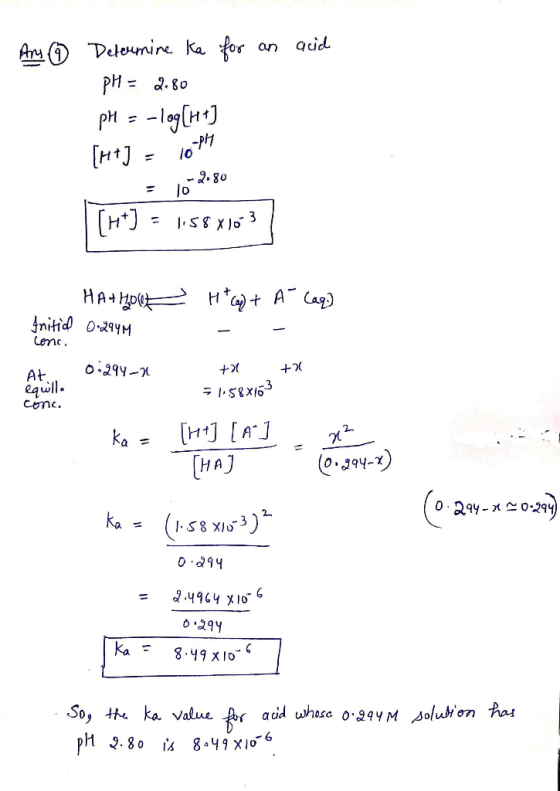 Ans ⑨ Determine Ka for an acid
pH = 2.80
pH = -log[H+]
[H+] = 10^-pH
= 10^-2.80
[H+] = 1.58 x 10^-3
HA + H2O(l) ⇌ H+(aq) + A-(aq)
Initial conc. 0.294M - -
At equill. conc. 0.294-x +x +x
= 1.58x10^-3
Ka = [H+] [A-] / [HA] = x^2 / (0.294-x)
(0.294-x ≃ 0.294)
Ka = (1.58 x10^-3)^2 / 0.294
= 2.4964 x10^-6 / 0.294
Ka = 8.49 x10^-6
So, the Ka value for acid whose 0.294M solution has
pH 2.80 is 8.49x10^-6